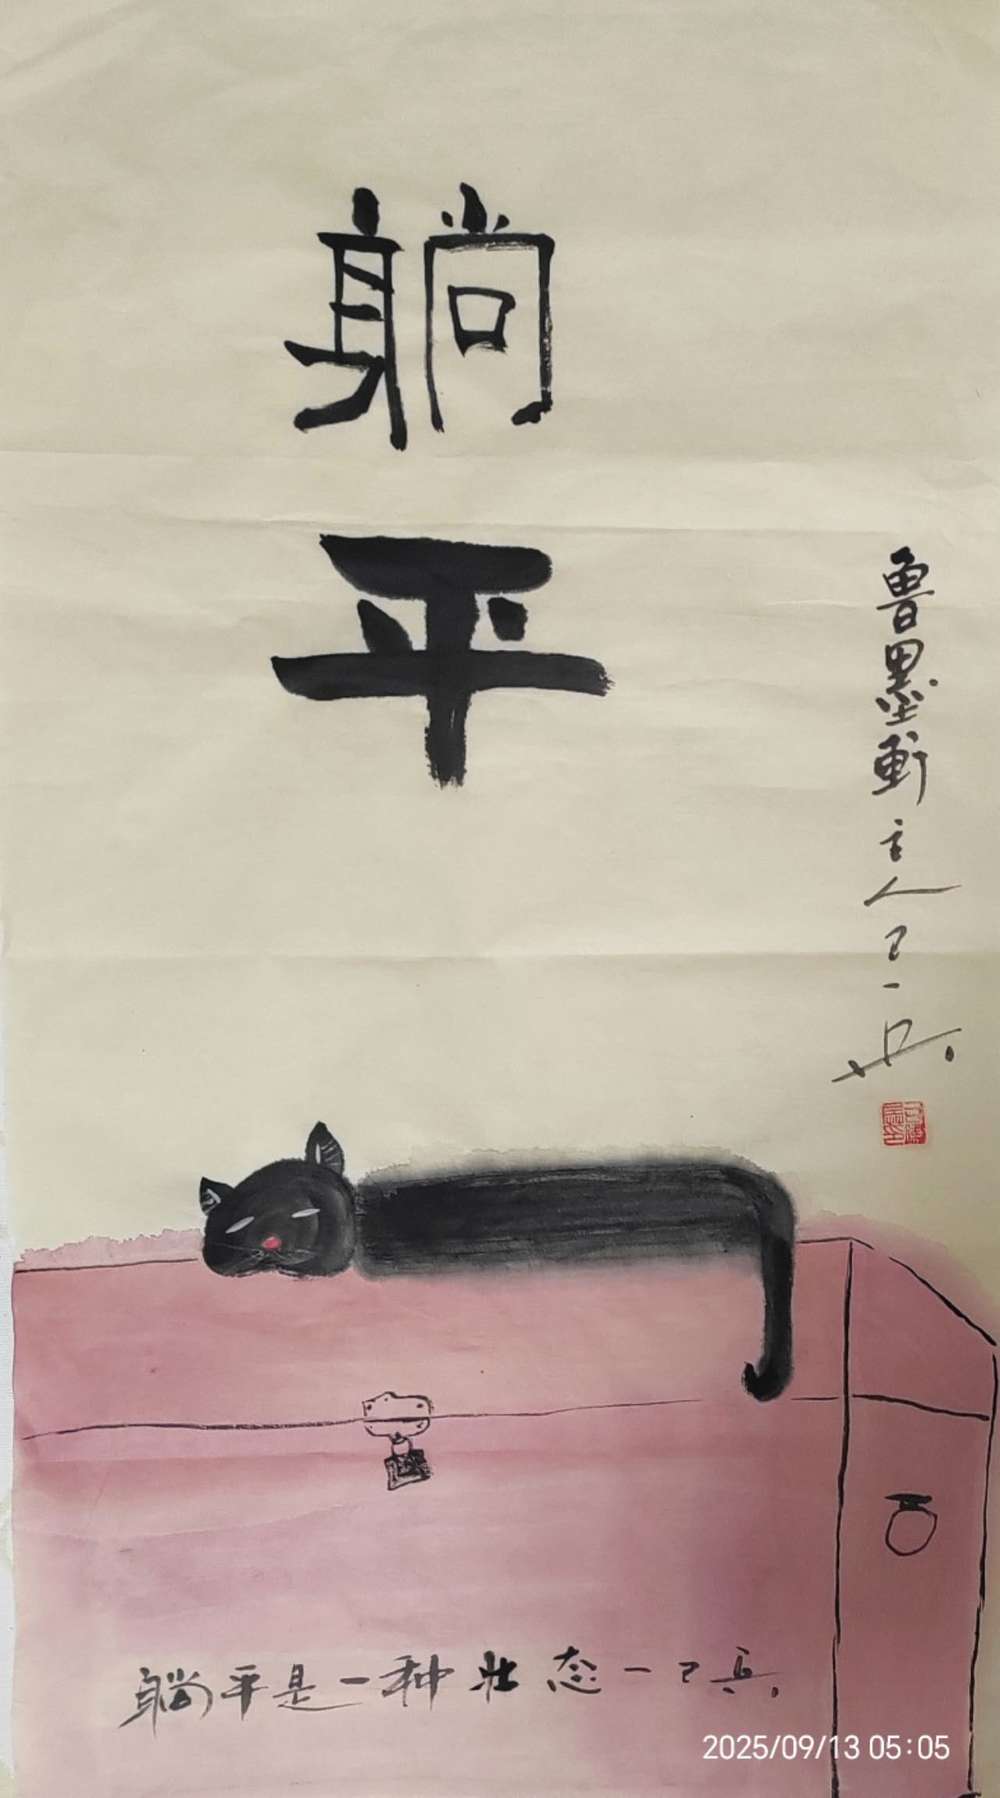 躺
平
鲁墨轩主人己一兵
躺平是一种状态一己兵
2025/09/13 05:05